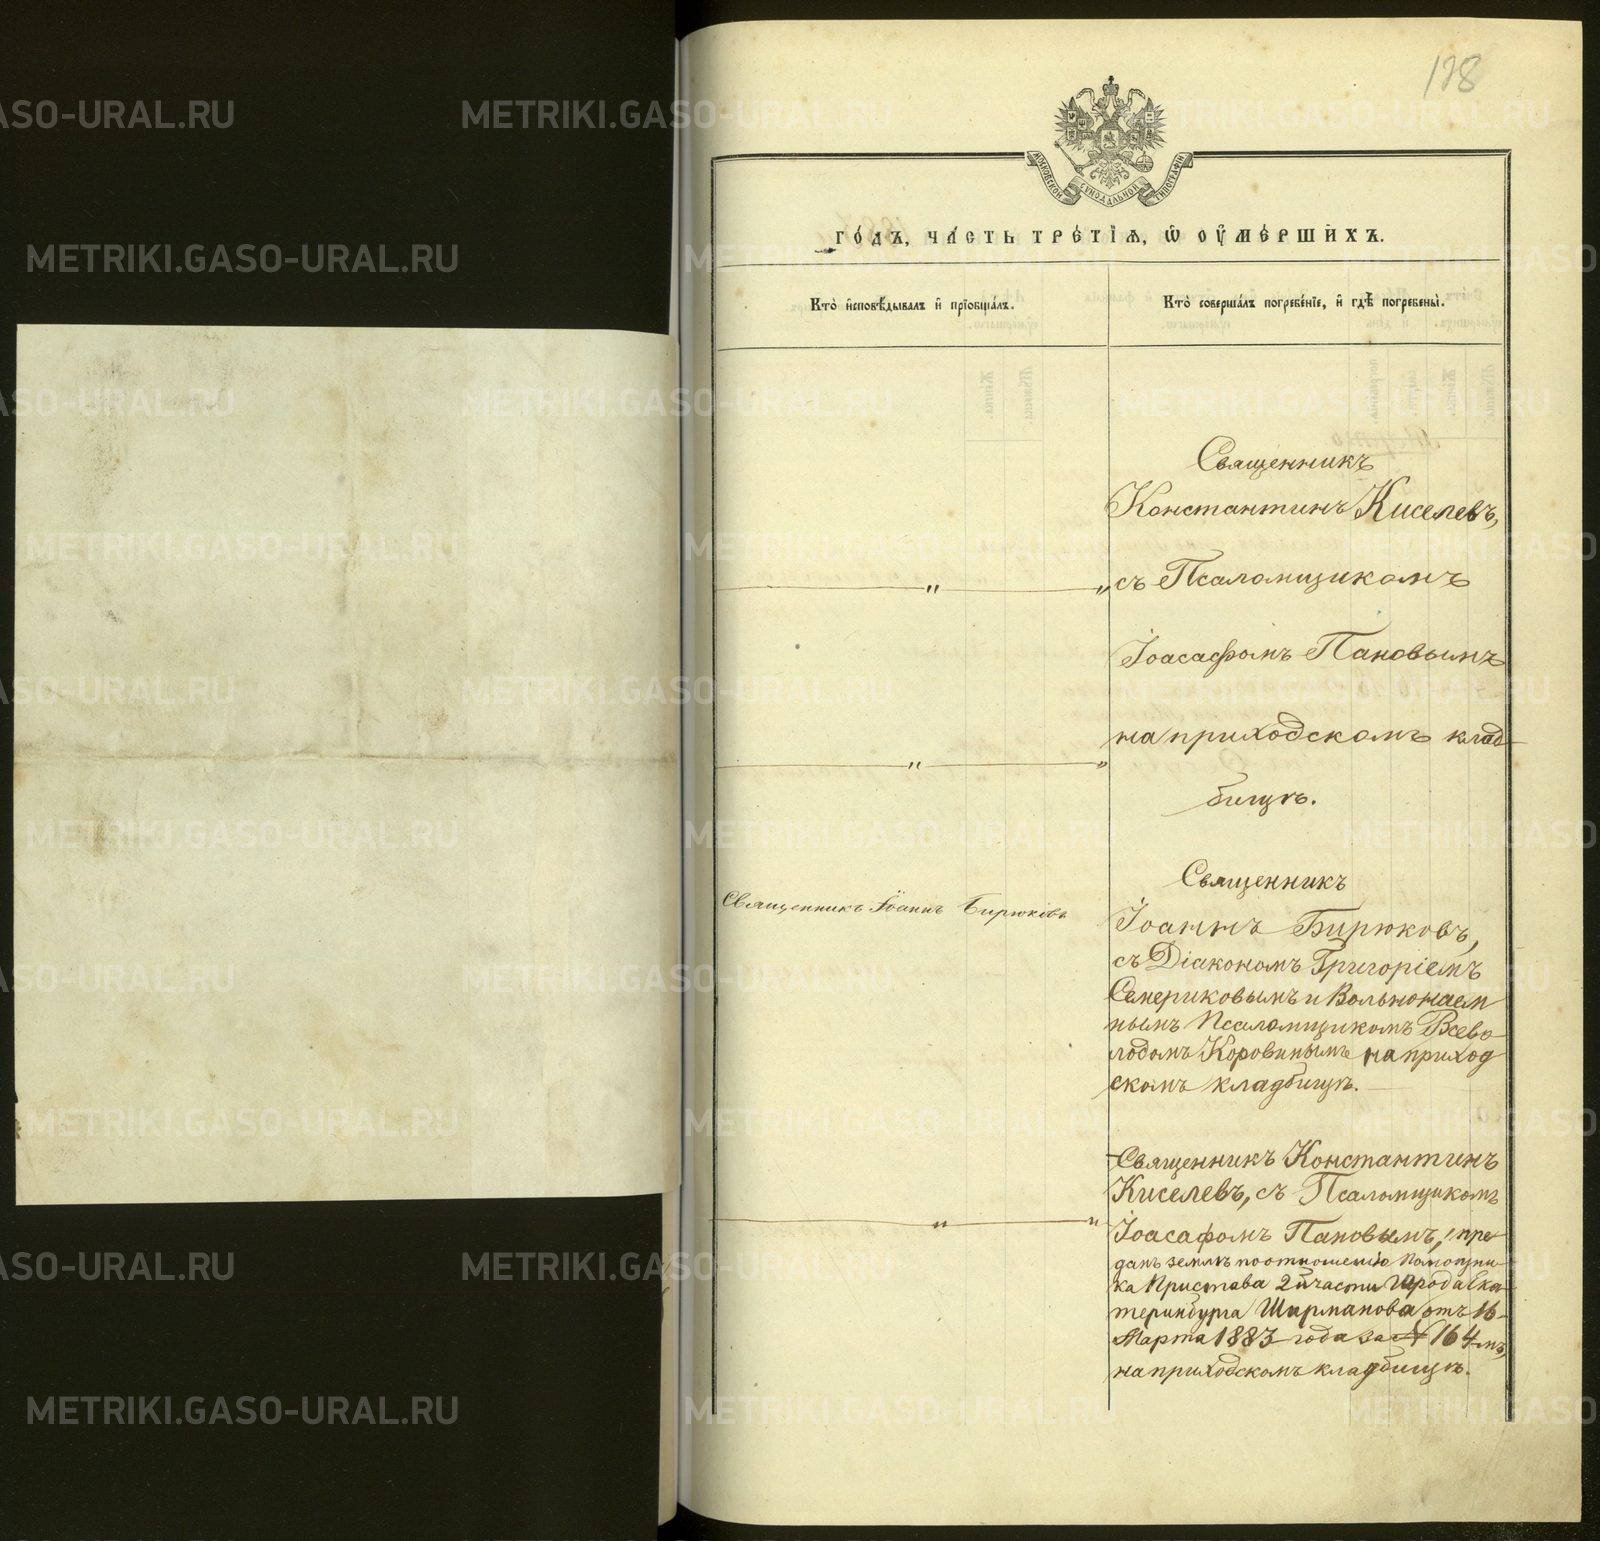 128
МОСКОВСКОЙ СѴНОДАЛЬНОЙ ТИПОГРАФІИ
го́дъ, ча́сть тре́тїѧ, ѡ҆ оу҆ме́ршихъ.
Кто̀ и҆сповѣ́дывалъ и҆ прїобща́лъ.
Кто̀ соверша́лъ погребе́нїе, и҆ гдѣ̀ погребены̀.
Священникъ
Константинъ Киселевъ,
съ Псаломщикомъ
Іоасафомъ Пановымъ
на приходскомъ клад-
бищѣ.
Священникъ Іоаннъ Бирюковъ
Священникъ
Іоаннъ Бирюковъ,
съ Діакономъ Григоріемъ
Семериковымъ и Вольнонаем
нымъ Псаломщикомъ Всево-
лодомъ Коровинымъ на приход
скомъ кладбищѣ.
Священникъ Константинъ
Киселевъ, съ Псаломщикомъ
Іоасафомъ Пановымъ, пре-
данъ землѣ по отношенію Помощни-
ка Пристава 2й части Города Ека-
теринбурга Ширманова отъ 16-
Марта 1883 года за № 164-мъ,
на приходскомъ кладбищѣ.
METRIKI.GASO-URAL.RU